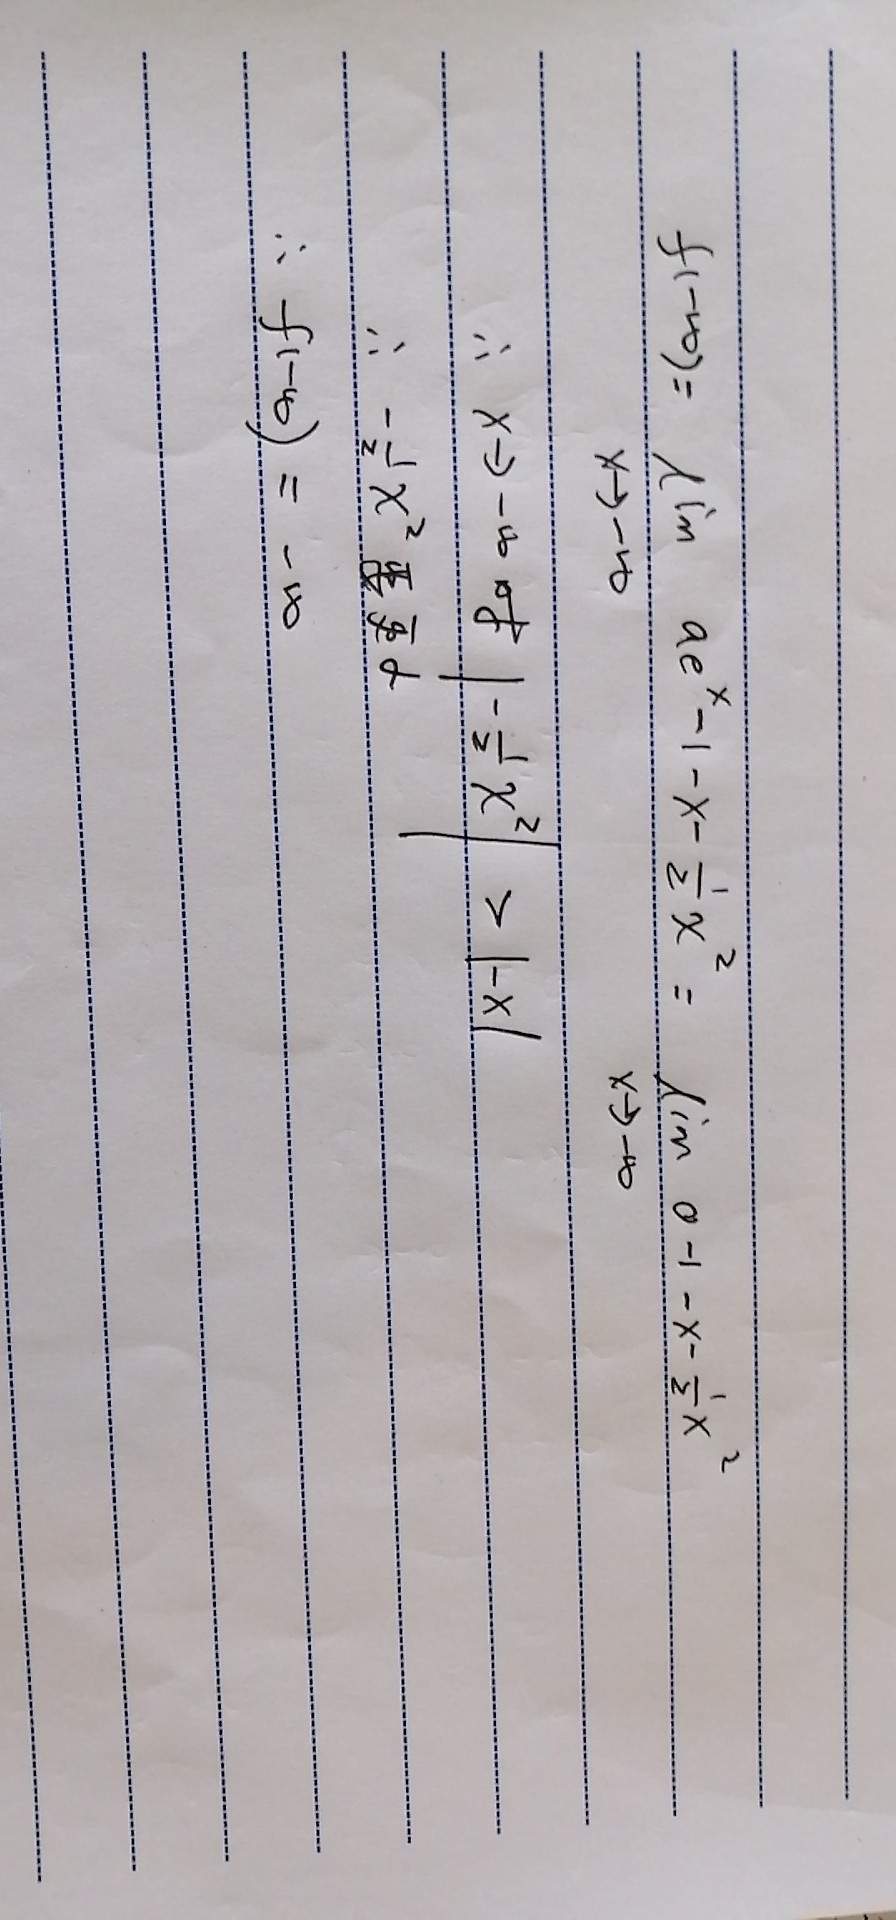 f(-∞) = lim ae^x - 1 - x - 1/2 x² = lim 0 - 1 - x - 1/2 x²
x→-∞ x→-∞
∵ x→-∞ 时 |-1/2 x²| > |-x|
∵ -1/2 x²
∴ f(-∞) = -∞